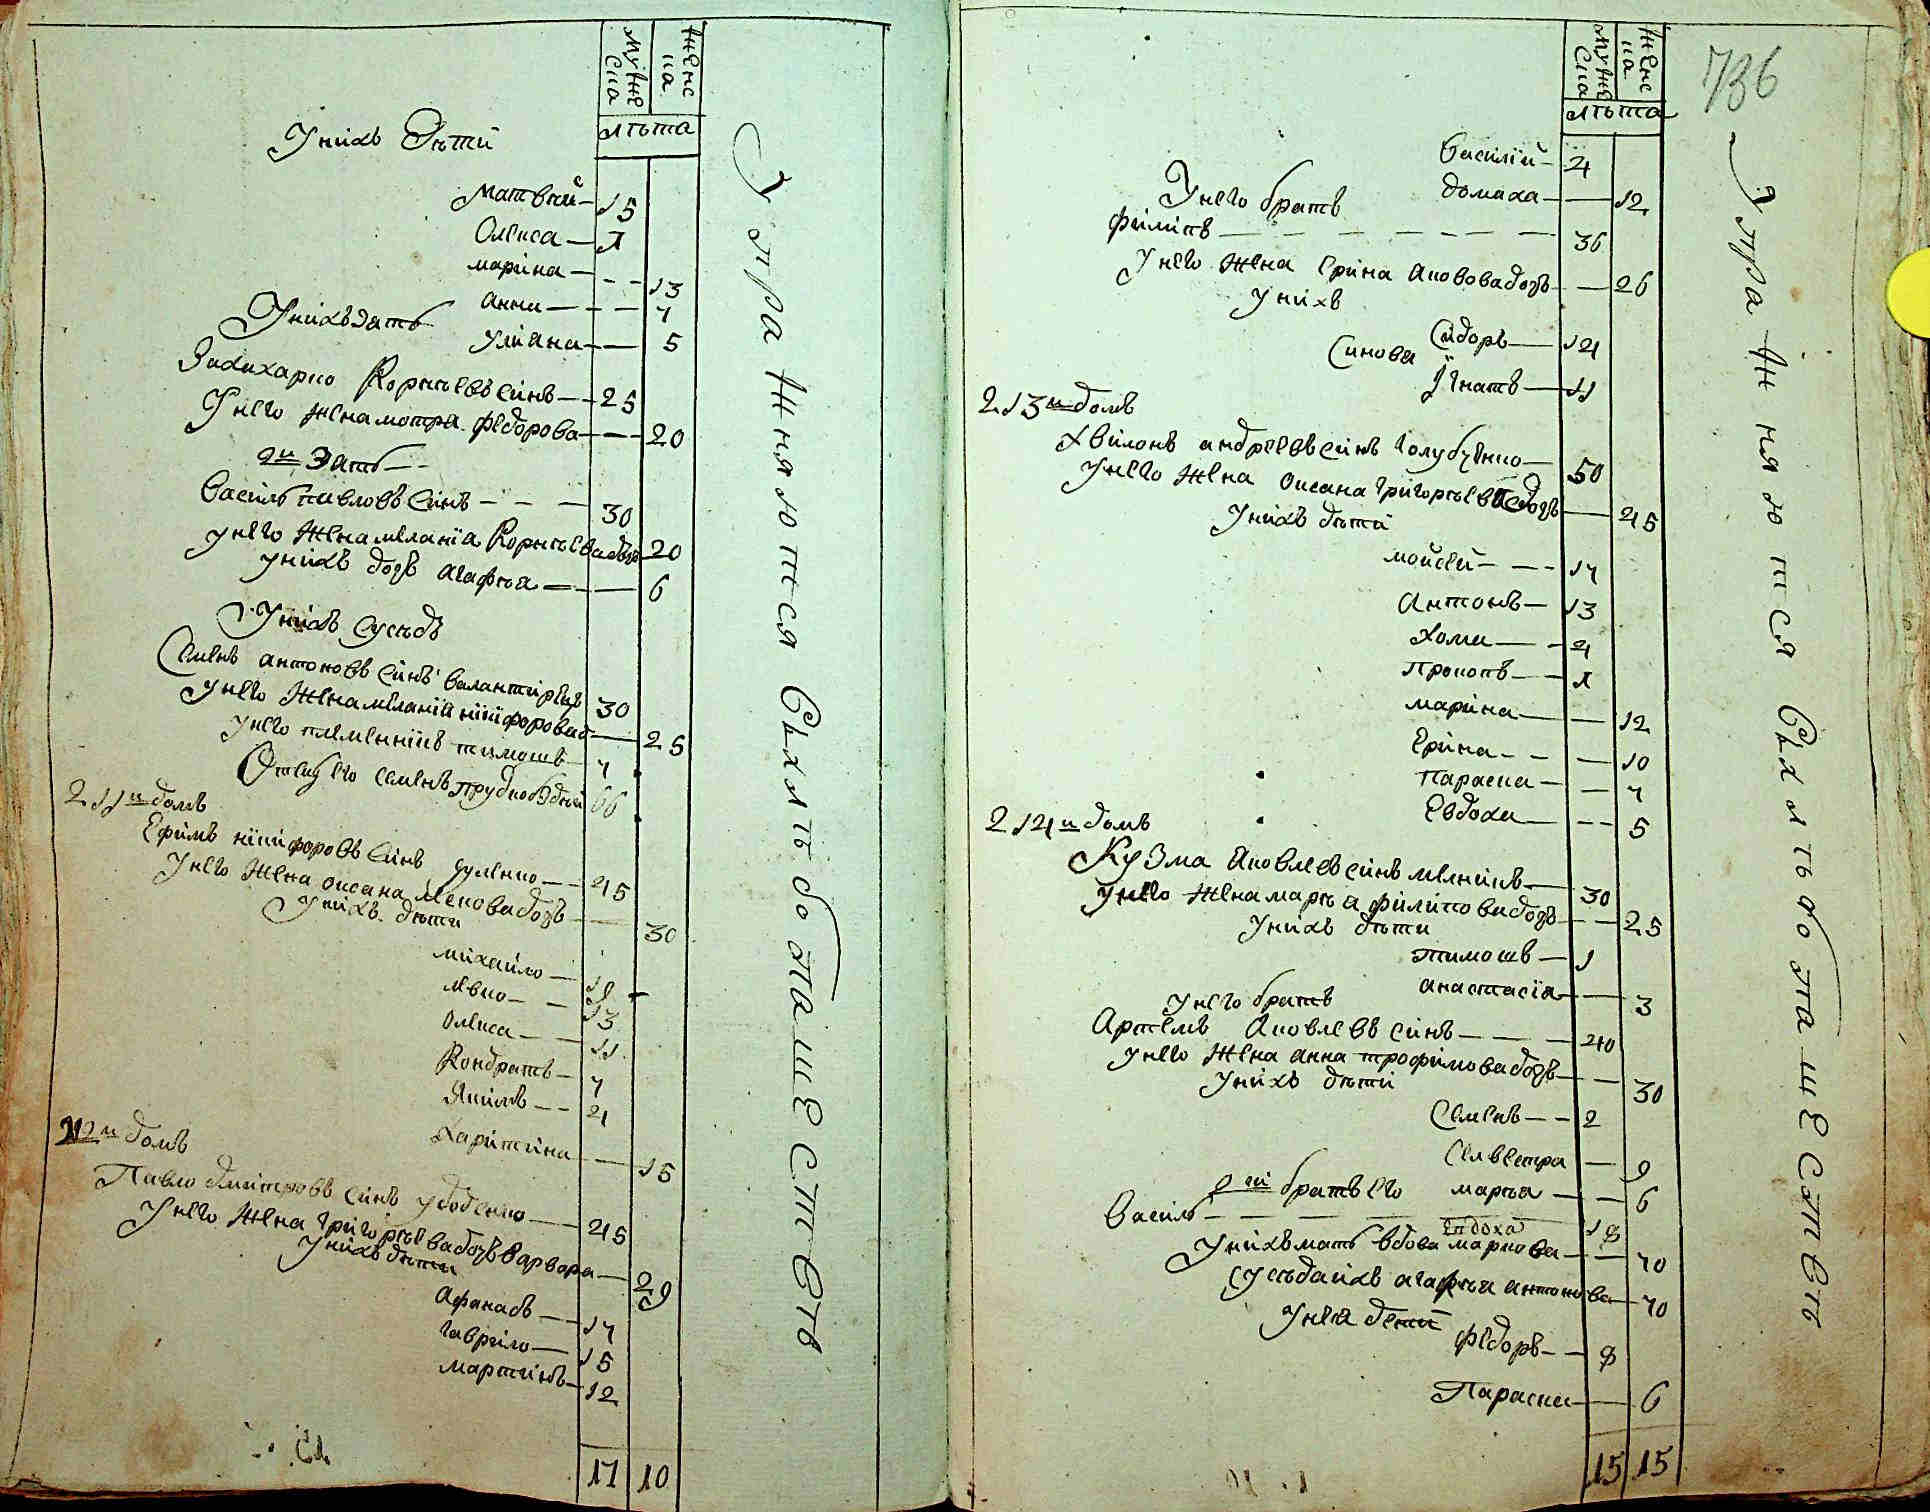 мужеска женска
лѣта
У нихъ дѣти
Матвей 15
Олекса
Марина 13
Анна 7
У нихъ зать
Улияна 5
Захарко Корнѣевъ синъ 25
У него жена Мотра Федорова 20
2й зать
Василь Павловъ синъ 30
У него жена Меланїа Корнѣева дочь 20
У нихъ дочь Агафия 6
У нихъ сусѣдъ
Семенъ Антоновъ синъ 30
У него жена Меланїя Никифорова 25
У него племенникъ Тимошъ 7
211й домъ
Ефимъ Никифоровъ синъ 45
У него жена Оксана 30
У нихъ дѣти
Михайло 19
Левко 13
Олекса 11
Кондратъ 7
Якимъ 4
Харитина 15
212й домъ
Павло Дмитровъ синъ 45
У него жена Григорѣева дочь Варвара 29
У нихъ дѣти
Афанасъ 17
Гаврило 15
Мартинъ 12
17 10
Упражняются в хлѣбопашествѣ
736
мужеска женска
лѣта
Василий 4
Домаха 12
У него братъ
Филипъ 36
У него жена Ерина Яковова дочь 26
У нихъ
Синови
Сидоръ 14
Игнатъ 11
213й домъ
Хвилонъ Андреевъ синъ Голубенко 50
У него жена Оксана Григорѣева дочь 45
У нихъ дѣти
Мойсей 17
Антонъ 13
Хома 4
Прокопъ
Марина 12
Ерина 10
Параска 7
Евдоха 5
214й домъ
Кузма Яковлевъ синъ Мелникъ 30
У него жена Марѣя Филипова дочь 25
У нихъ дѣти
Тимошъ 1
Анастасїя 3
У него братъ
Артемъ Яковлевъ синъ 40
У него жена Анна Трофимова дочь 30
У нихъ дѣти
Семенъ 2
Селвестра 9
Марѣя 6
2й братъ его
Василь 18
У нихъ мать вдова Евдоха Маркова 70
Сусѣда ихъ Агафѣя Антонова 70
У нея дети
Федоръ 8
Параска 6
15 15
Упражняются в хлѣбопашествѣ